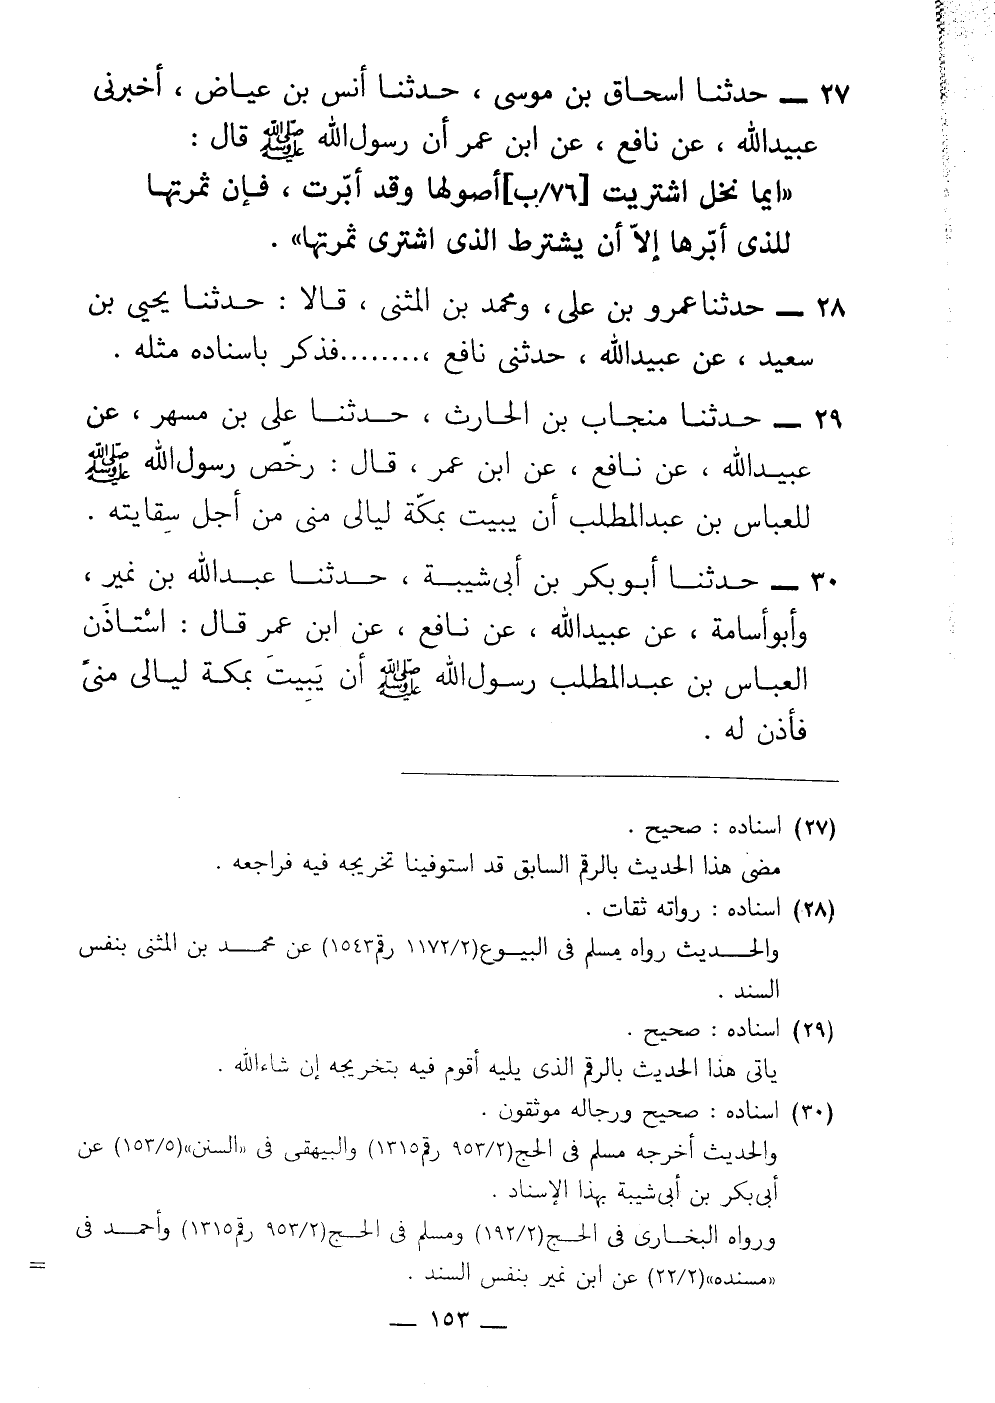 ٢٧ — حدثنا اسحاق بن موسى ، حدثنا أنس بن عياض ، أخبرنى
عبيدالله ، عن نافع ، عن ابن عمر أن رسول‌الله ﷺ قال :
«ايما نخل اشتريت [٧٦/ب]أصولها وقد أبّرت ، فإن ثمرتها
للذى أبّرها إلاّ أن يشترط الذى اشترى ثمرتها» .
٢٨ — حدثنا عمرو بن على، ومحمد بن المثنى ، قالا : حدثنا يحيي بن
سعيد ، عن عبيدالله ، حدثنى نافع ،........فذكر باسناده مثله .
٢٩ — حدثنا منجاب بن الحارث ، حدثنا على بن مسهر ، عن
عبيدالله ، عن نافع ، عن ابن عمر ، قال : رخّص رسول‌الله ﷺ
للعباس بن عبدالمطلب أن يبيت بمكّة ليالى منى من أجل سقايته .
٣٠ — حدثنا أبوبكر بن أبى‌شيبة ، حدثنا عبدالله بن نمير ،
وأبوأسامة ، عن عبيدالله ، عن نافع ، عن ابن عمر قال : اسْتاذَن
العباس بن عبدالمطلب رسول‌الله ﷺ أن يَبِيتَ بمكة ليالى منىً
فأذن له .
(٢٧) اسناده : صحيح .
مضى هذا الحديث بالرقم السابق قد استوفينا تخريجه فيه فراجعه .
(٢٨) اسناده : رواته ثقات .
والحديث رواه مسلم فى البيوع(١١٧٢/٢ رقم١٥٤٣) عن محمد بن المثنى بنفس
السند .
(٢٩) اسناده : صحيح .
ياتى هذا الحديث بالرقم الذى يليه أقوم فيه بتخريجه إن شاءالله .
(٣٠) اسناده : صحيح ورجاله موثقون .
والحديث أخرجه مسلم فى الحج(٩٥٣/٢ رقم١٣١٥) والبيهقى فى «السنن»(١٥٣/٥) عن
أبى‌بكر بن أبى‌شيبة بهذا الإسناد .
ورواه البخارى فى الحج(١٩٢/٢) ومسلم فى الحج(٩٥٣/٢ رقم١٣١٥) وأحمد فى
«مسنده»(٢٢/٢) عن ابن نمير بنفس السند .
=
— ١٥٣ —